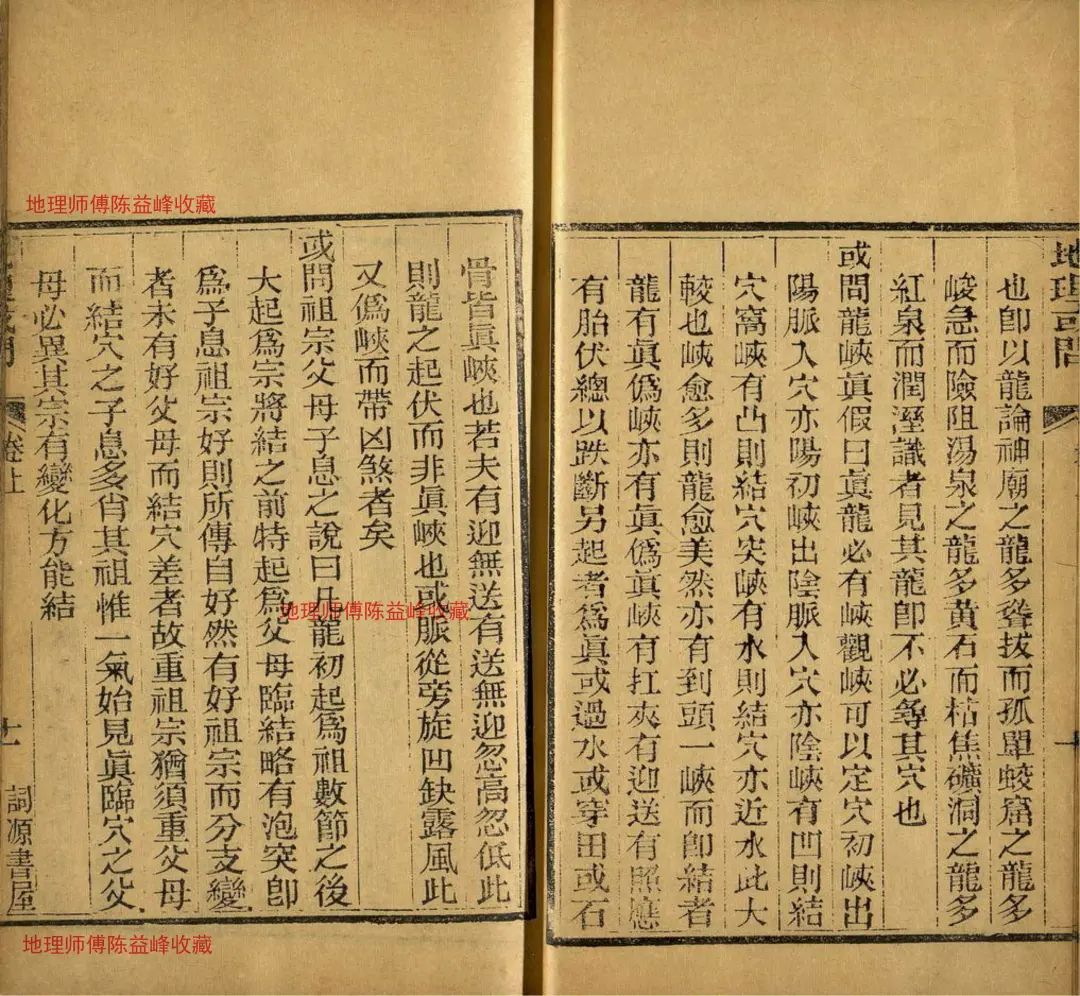 地理或問
也卽以龍論神廟之龍多聳拔而孤單蛟窟之龍多
峻急而險阻湯泉之龍多黃石而枯焦礦洞之龍多
紅泉而潤溼識者見其龍卽不必尋其穴也
或問龍峽眞假曰眞龍必有峽觀峽可以定穴初峽出
陽脈入穴亦陽初峽出陰脈入穴亦陰峽有凹則結
穴窩峽有凸則結穴突峽有水則結穴亦近水此大
較也峽愈多則龍愈美然亦有到頭一峽而卽結者
龍有眞僞峽亦有眞僞眞峽有扛夾有迎送有照應
有胎伏總以跌斷另起者爲眞或過水或穿田或石
骨皆眞峽也若夫有迎無送有送無迎忽高忽低此
則龍之起伏而非眞峽也或脈從旁旋凹缺露風此
又僞峽而帶凶煞者矣
或問祖宗父母子息之說曰凡龍初起爲祖數節之後
大起爲宗將結之前特起爲父母臨結略有泡突卽
爲子息祖宗好則所傳自好然有好祖宗而分支變
者未有好父母而結穴差者故重祖宗猶須重父母
而結穴之子息多肖其祖惟一氣始見眞臨穴之父
母必異其宗有變化方能結
卷上
十一
詞源書屋
地理师傅陈益峰收藏
地理师傅陈益峰收藏
地理师傅陈益峰收藏